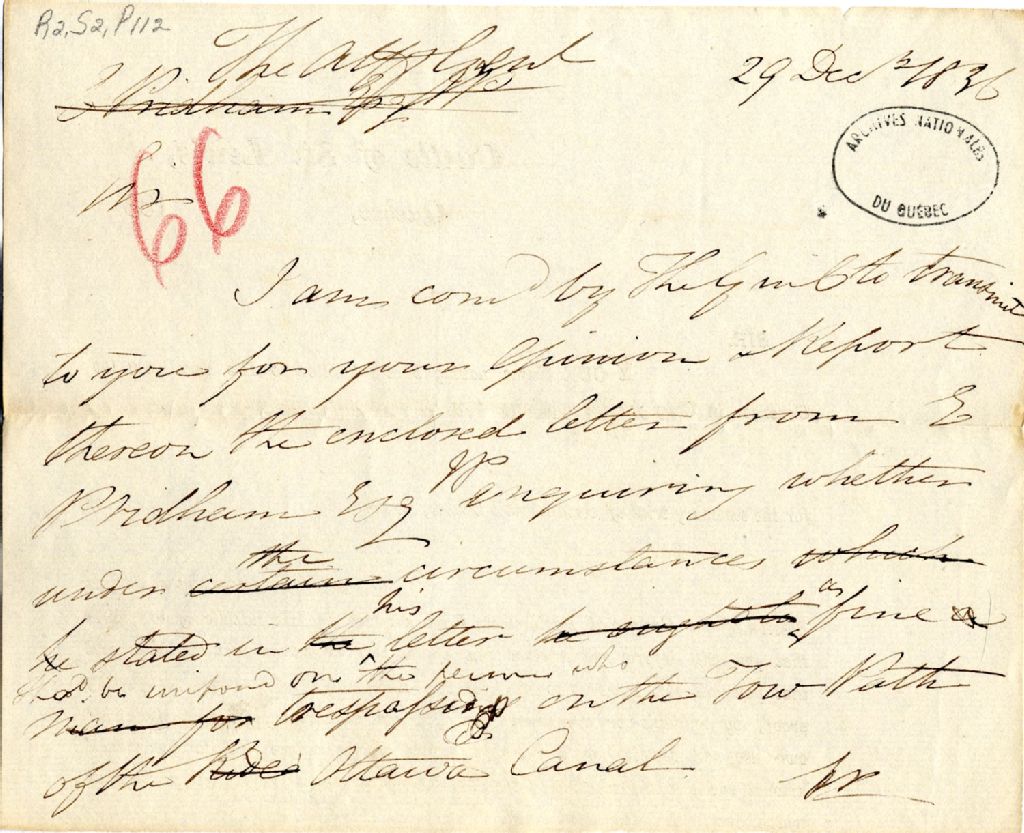 R2, S2, P112
The Att Genl
29 Decr 1836
E Pridham Esq JP
ARCHIVES NATIONALES
DU QUÉBEC
Sir
66
I am comd by The to transmit
to you for your Opinion & Report
thereon the enclosed letter from E
Pridham Esq JP enquiring whether
under certain the circumstances which
he stated in the his letter he ought to a fine a
shd be imposed on the person who
man for trespassing on the Tow Path
of the Ottawa Canal